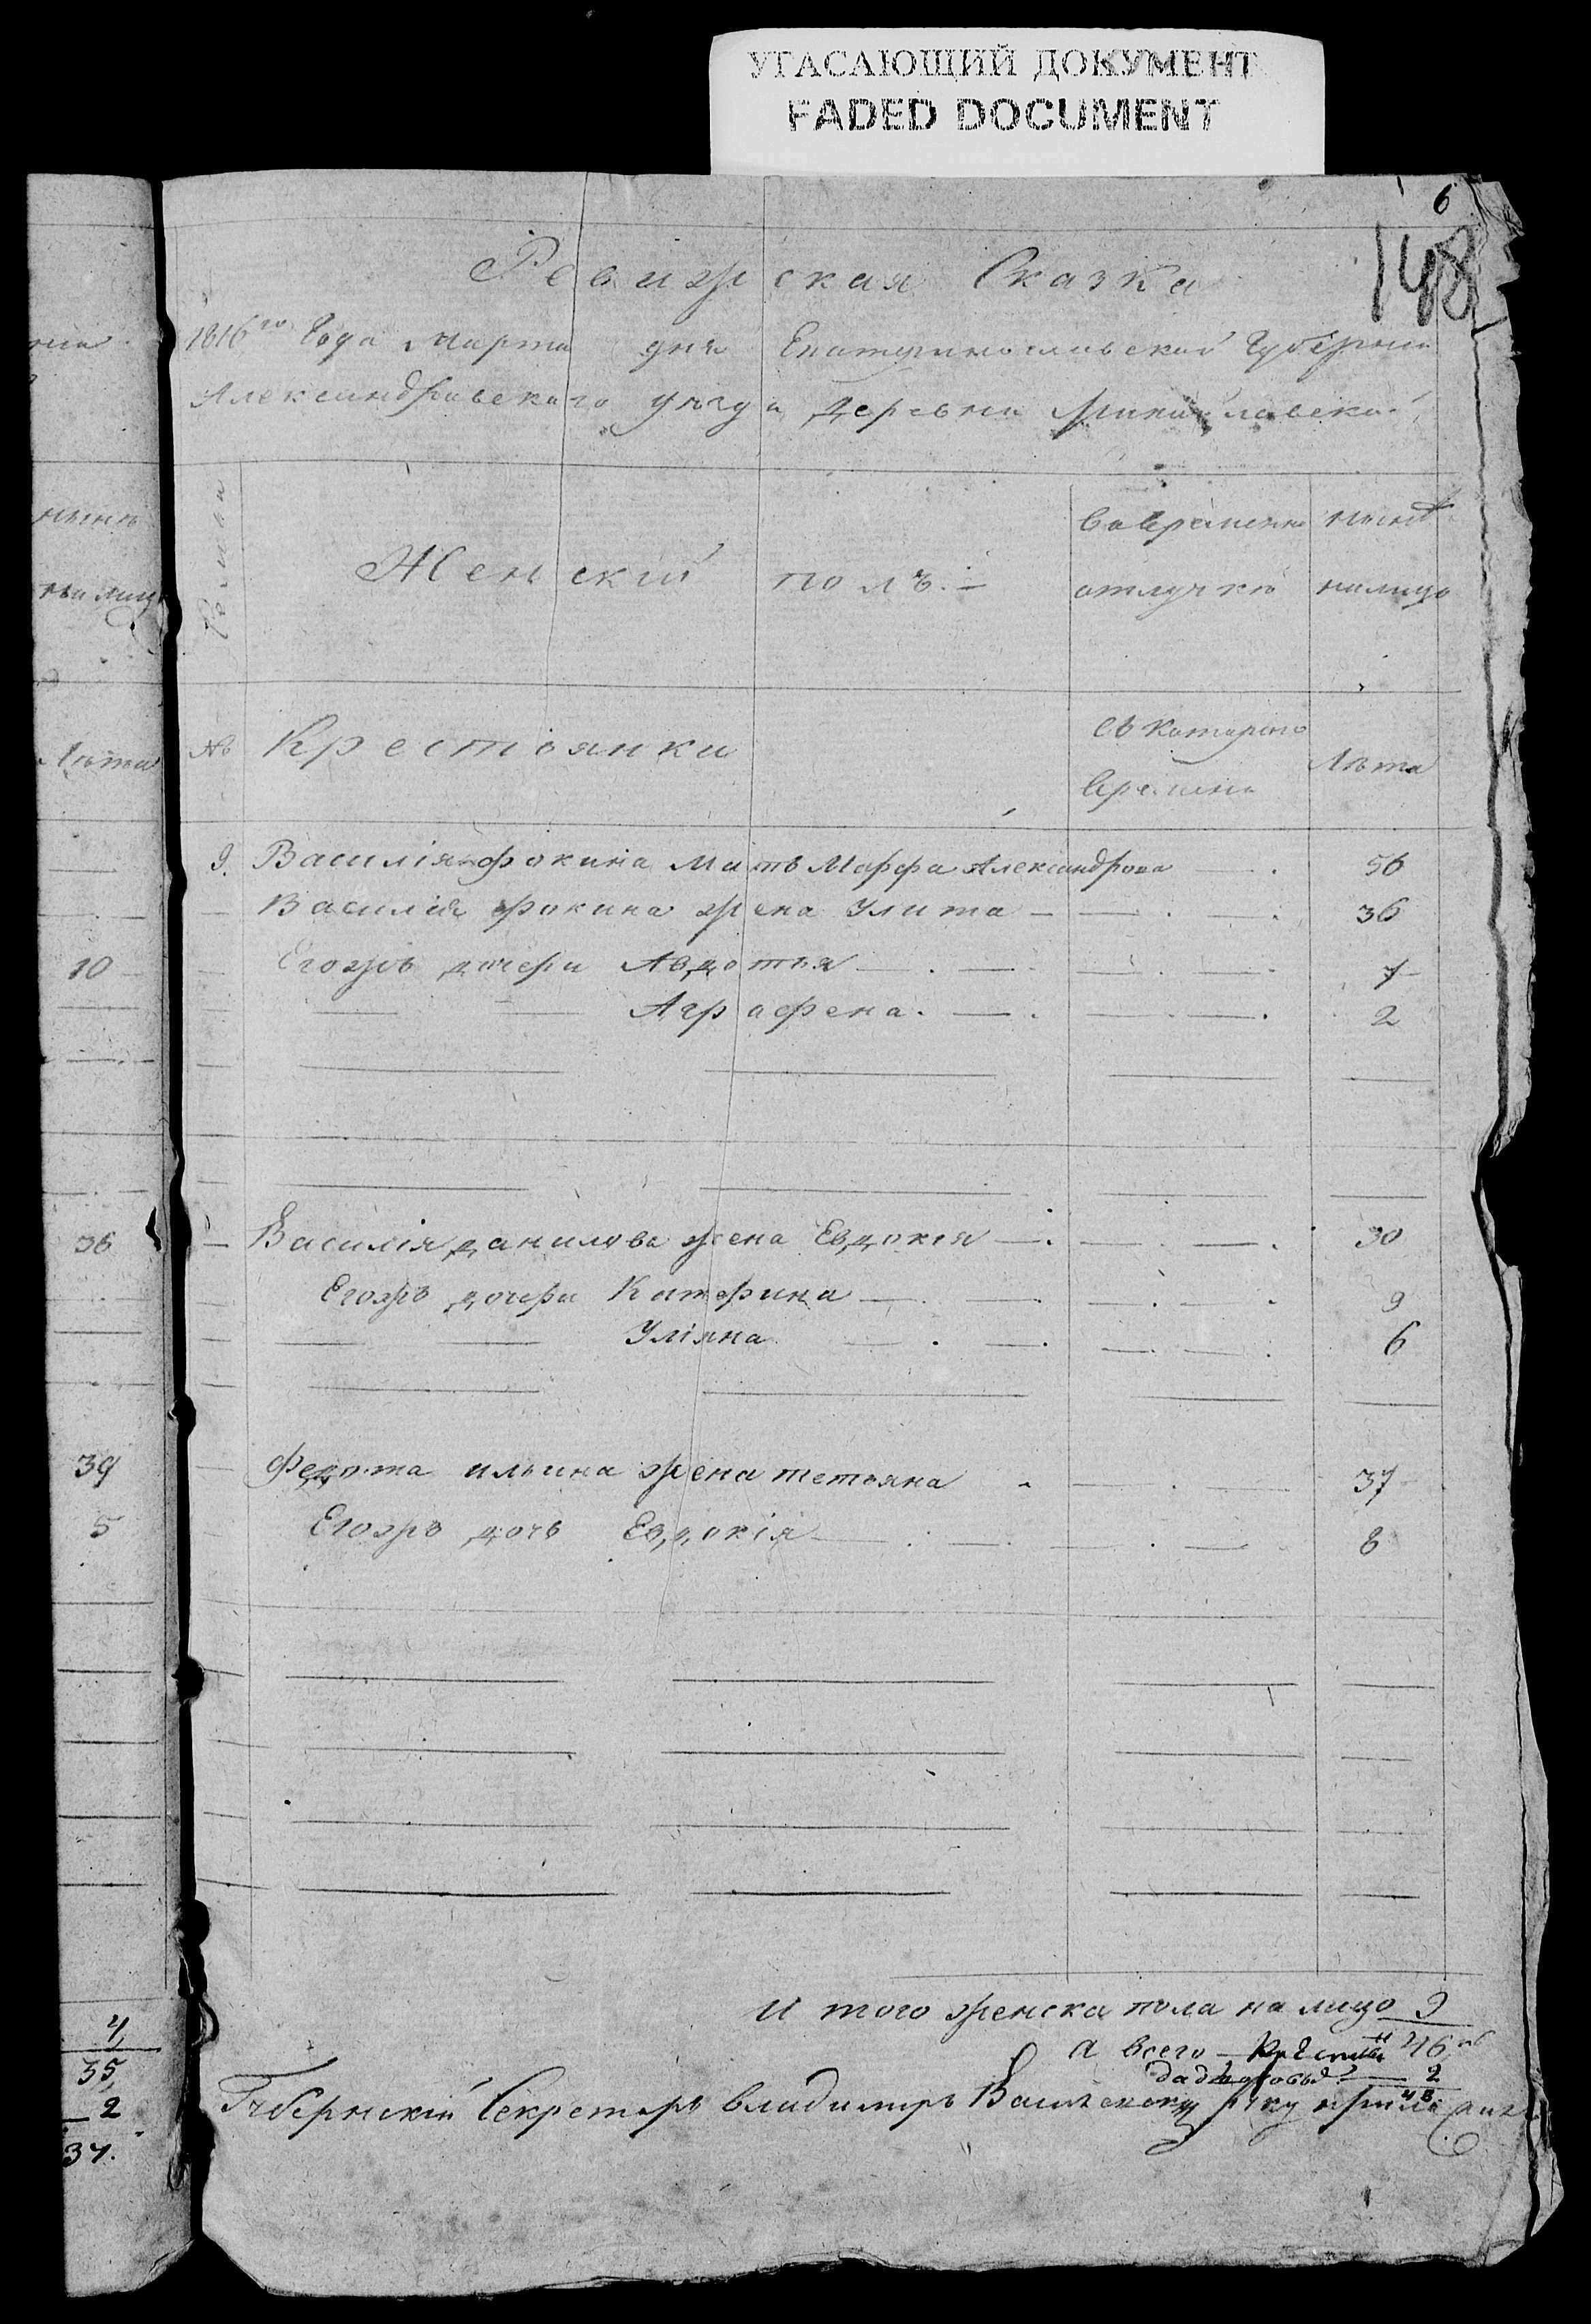 УГАСАЮЩИЙ ДОКУМЕНТ
FADED DOCUMENT
6
148
Ревижская Сказка
1816го Года Марта дня Екатеринославской Губернии
Александровского уезда Деревни
Женский полъ.
вовременно отлучке
ныне налицо
№ Крестьянки
съ которого времяни
Лета
9. Василія Фокина мать Марфа Александрова 56
Василія Фокина жена Улита 36
Егожъ дочери Авдотья 7
Аграфена 2
Василія данилова жена Евдокія 30
Егожъ дочери Катерина 9
Уліяна 6
Федота ильина жена тетьяна 37
Егожъ дочь Евдокія 8
и того женска пола на лицо 9
а всего 46
2
48
Губернскій Секретарь владимиръ руку
нынѣ
на лицо
Лѣта
10
36
39
5
4
35
2
37.